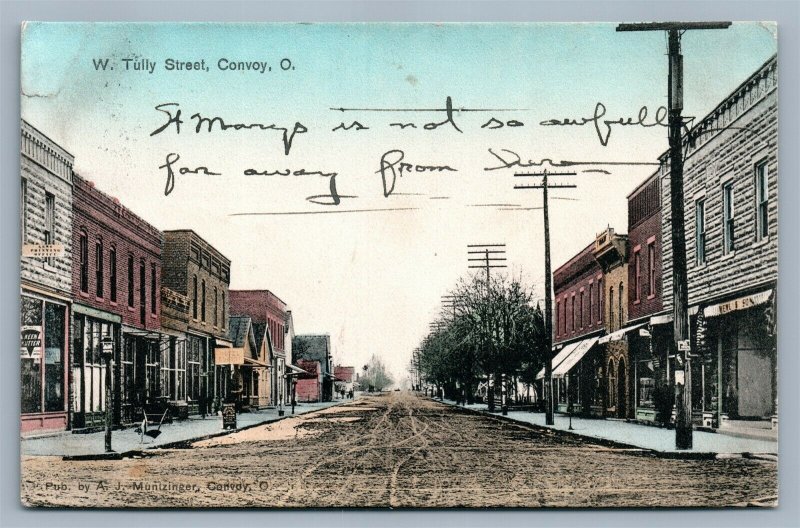 W. Tully Street, Convoy, O.
St Marys is not so awfully
far away from
KEEN
KUTTER
Pub. by A. J. Muntzinger, Convoy, O.